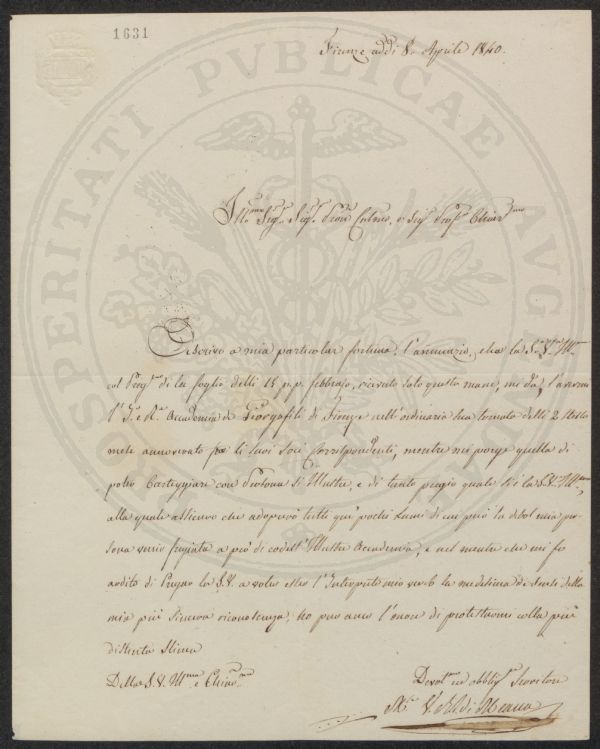 1631
PROSPERITATI PVBLICAE AVGENDAE
Firenze addi 8. Aprile 1840.
Ill.mo Sig.r Sig.r Pron e Sig.r Prof.r Chiar.mo
Ascrivo a mia particolar fortuna l'annunzio, che la S.V. Ill.ma
col di lei foglio delli 15 p.p. febbrajo, ricevuto solo questa mane, mi dà, l'avermi
l'I. e R. Accademia de Georgofili di Firenze nell'ordinaria sua tornata delli 2 stesso
mese annoverato fra li suoi Soci Corrispondenti, mentre mi porge quella di
poter Carteggiare con Persona sì Illustre, e di tanto pregio quale si è la S.V. Ill.ma,
alla quale che adoprerò tutti que' pochi lumi di cui può la debol mia per
sona venir fregiata a prò di codest' Illustre Accademia, e nel mentre che mi fo
ardito di Pregare la S.V. a voler esser l'Interprete mio verso la medesima de' sensi della
mia più sincera riconoscenza, ho pur anco l'onore di protestarmi colla più
distinta stima
Della S.V. Ill.ma e Chiar.ma
Devot.mo ed obblig.mo Servitore